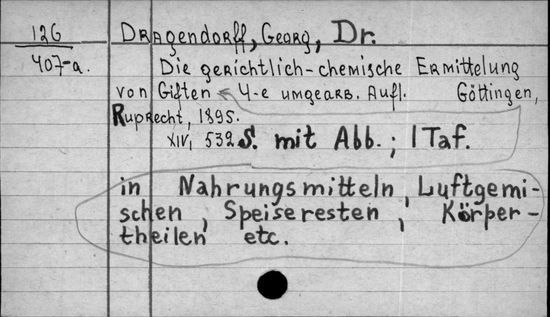 126 Dragendorff, Georg, Dr.
407-a. Die gerichtlich-chemische Ermittelung
von Giften 4-e umgearb. Aufl. Göttingen,
Ruprecht, 1895.
XIV, 532 S. mit Abb.; 1 Taf.
in Nahrungsmitteln, Luftgemi-
schen, Speiseresten, Körper-
theilen etc.